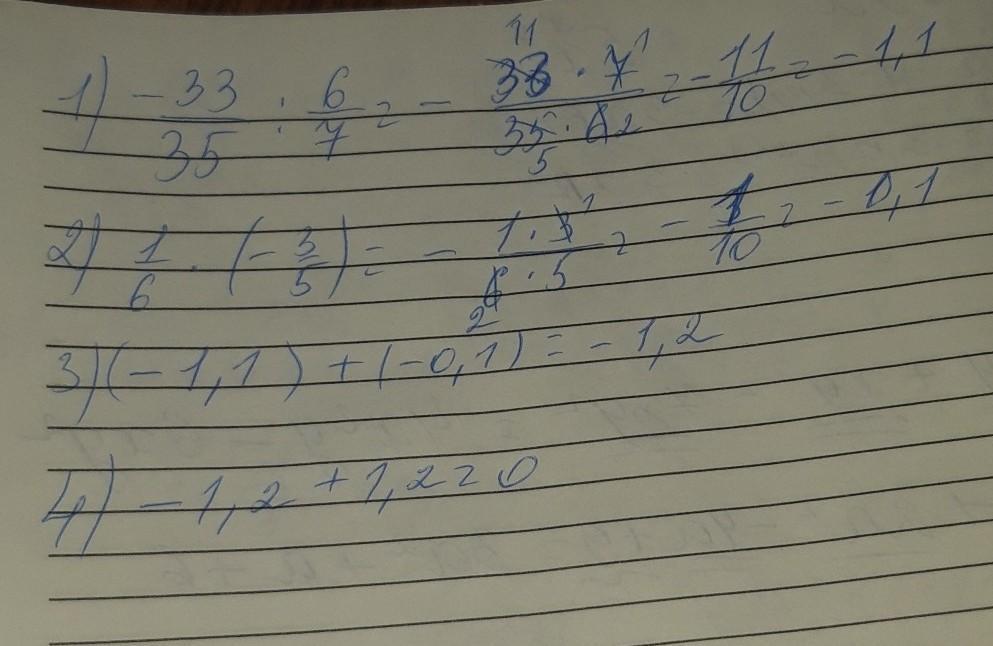 1) -33/35 : 6/7 = - 33 · 7/35 · 6 = - 11/10 = - 1,1
2) 1/6 · (- 3/5) = - 1 · 3/6 · 5 = - 1/10 = - 0,1
3) (- 1,1) + (-0,1) = - 1,2
4) - 1,2 + 1,2 = 0